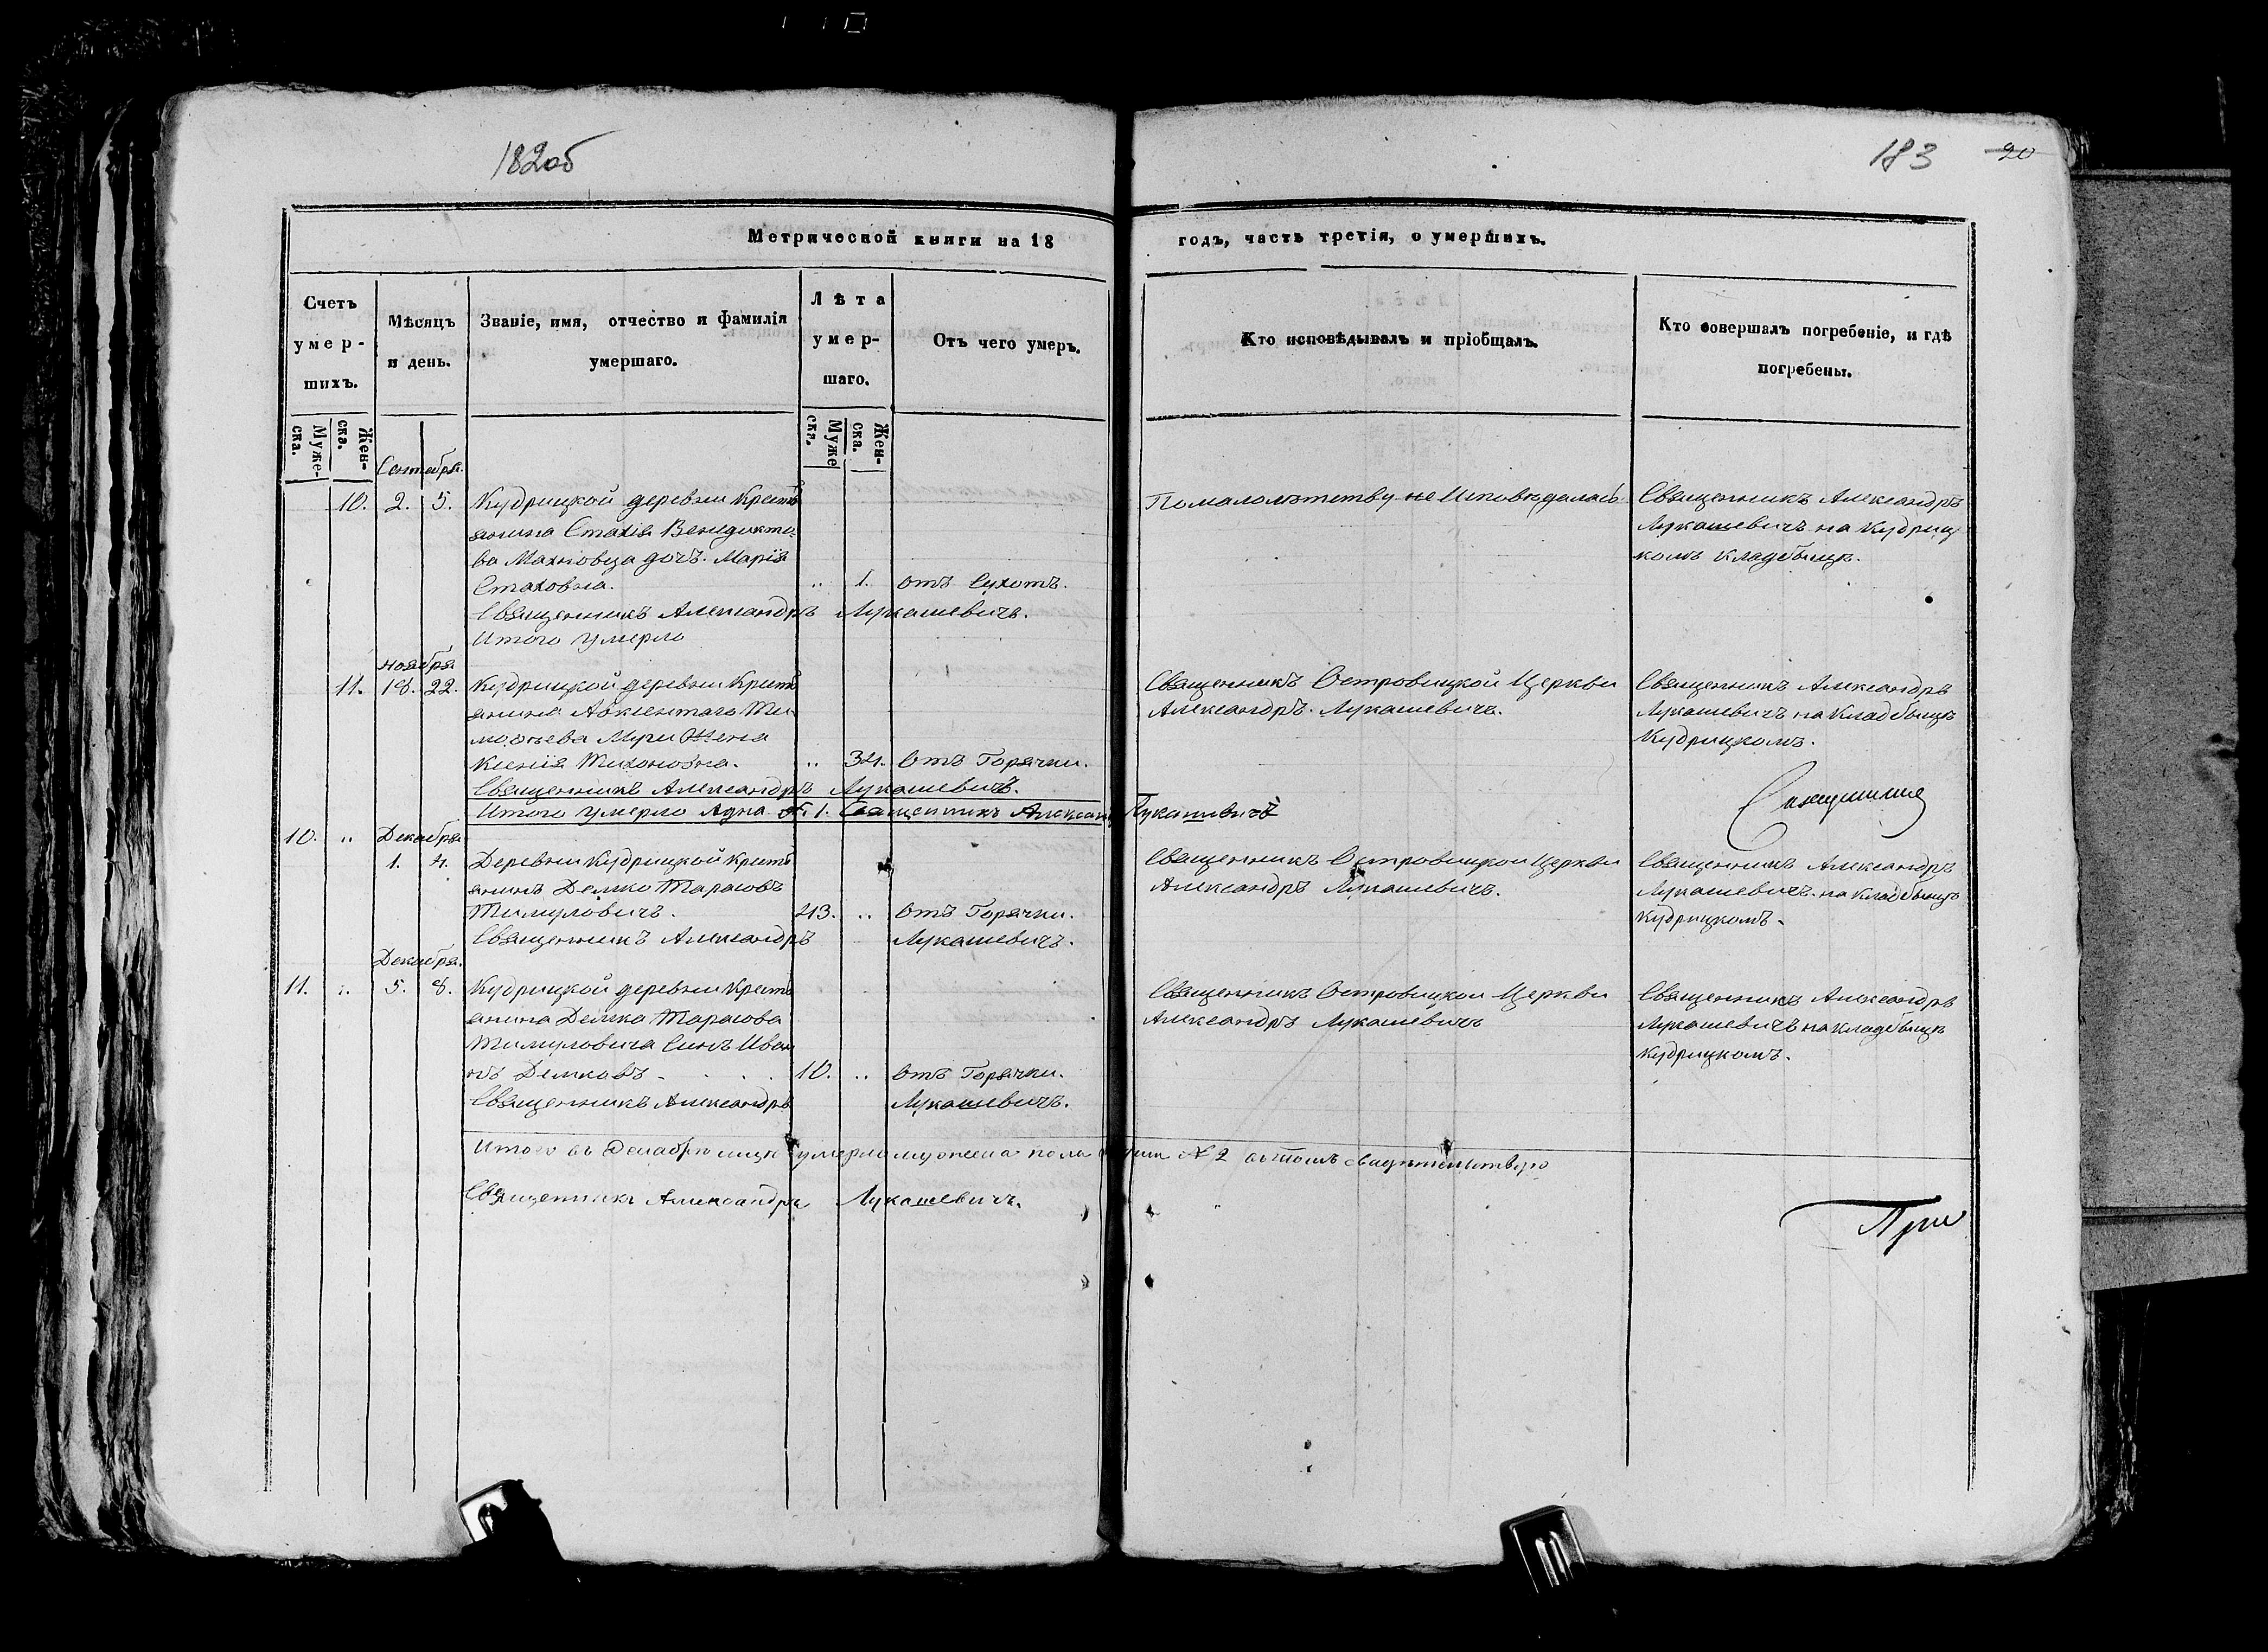 182об
183 20
Метрической книги на 18 годъ, часть третія, о умершихъ.
Счетъ умер-шихъ.
Муже-ска.
Жен-ска.
Мѣсяцъ и день.
Званіе, имя, отчество и фамилія умершаго.
Лѣта умер-шаго.
Муже ска.
Жен-ска.
Отъ чего умеръ.
Кто исповѣдывалъ и пріобщалъ.
Кто совершалъ погребеніе, и гдѣ погребены.
Сентября.
10. 2. 5. Кудрицкой деревни Крестъ
янина Стахія Венедикто-
ва Махновца дочь. Марія
Стаховна. .. 1. отъ Сухотъ.
Священникъ Александръ Лукашевичъ.
Итого умерло
По малолѣтству не Исповѣдалась
Священникъ Александръ
Лукашевичъ на Кудриц
комъ кладбищѣ.
Ноября
11. 18. 22. Кудрицкой деревни Крестъ
янина
Жена
Ксенія Тихоновна. .. 34. Отъ Горячки.
Священникъ Александръ Лукашевичъ.
Итого умерло Адна 1. Священникъ Александръ Лукашевичъ
Священникъ Островицкой Церкви
Александръ Лукашевичъ.
Священникъ Александръ
Лукашевичъ на Кладбищѣ
Кудрицкомъ.
10. .. Декабря
1. 4. Деревни Кудрицкой Крестъ
янинъ Демко Тарасовъ
.. 43. .. Отъ Горячки.
Священникъ Александръ Лукашевичъ.
Священникъ Островицкой Церкви
Александръ Лукашевичъ.
Священникъ Александръ
Лукашевичъ. на Кладбищѣ
Кудрицкомъ.
Декабря.
11. .. 5. 8. Кудрицкой деревни Крестъ
янина Демка Тарасова
Синъ Ива
нъ Демковъ 10. .. Отъ Горячки.
Священникъ Александръ Лукашевичъ.
Священникъ Островицкой Церкви
Александръ Лукашевичъ
Священникъ Александръ
Лукашевичъ на кладбищѣ
Кудрицкомъ.
Итого въ Декабрѣ умерло мужеска пола 2 въ томъ свидѣтельствую
Священникъ Александръ Лукашевичъ.
При